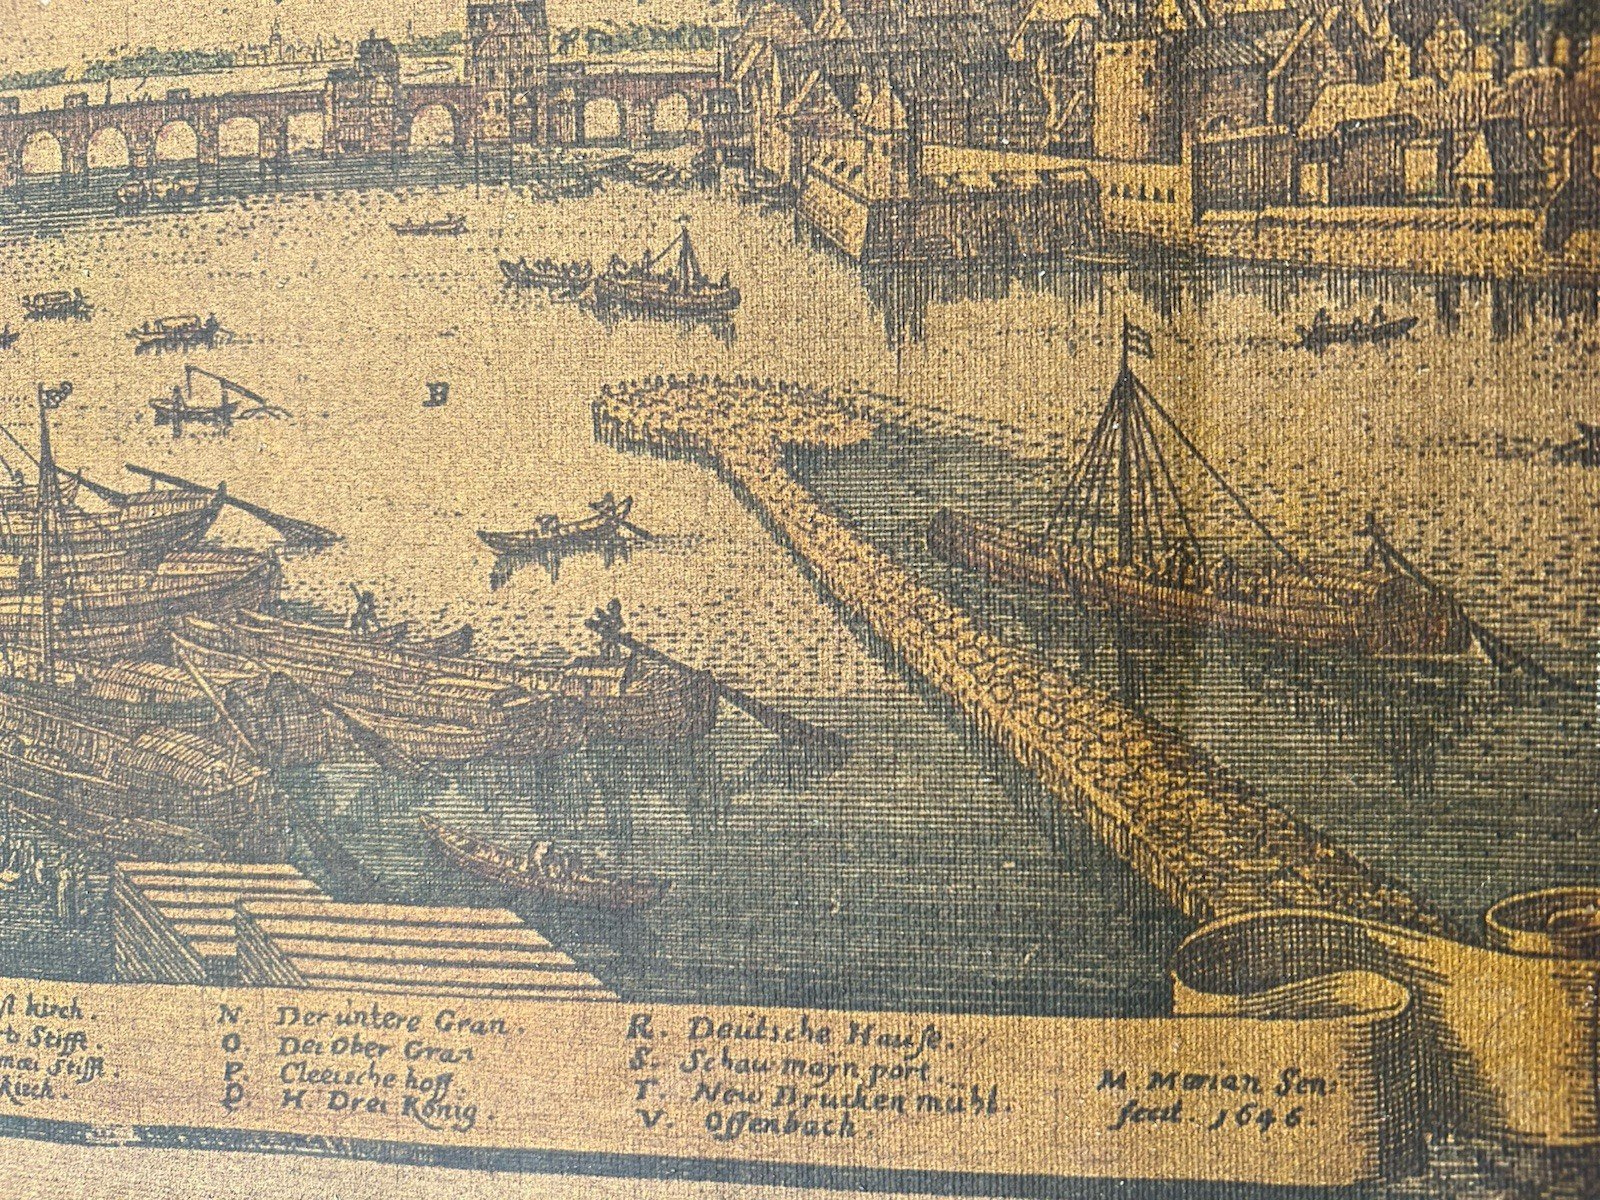 B
kirch.
Stifft.
Stifft.
kirch.
N. Der úntere Gran.
O. Der Ober Gran
P. Cleeische hoff.
Q. H. Drei König.
R. Deútsche Hauſe.
S. Schau maÿn port.
T. New Brucken mühl.
V. Offenbach.
M. Merian Sen:
fecit. 1646.